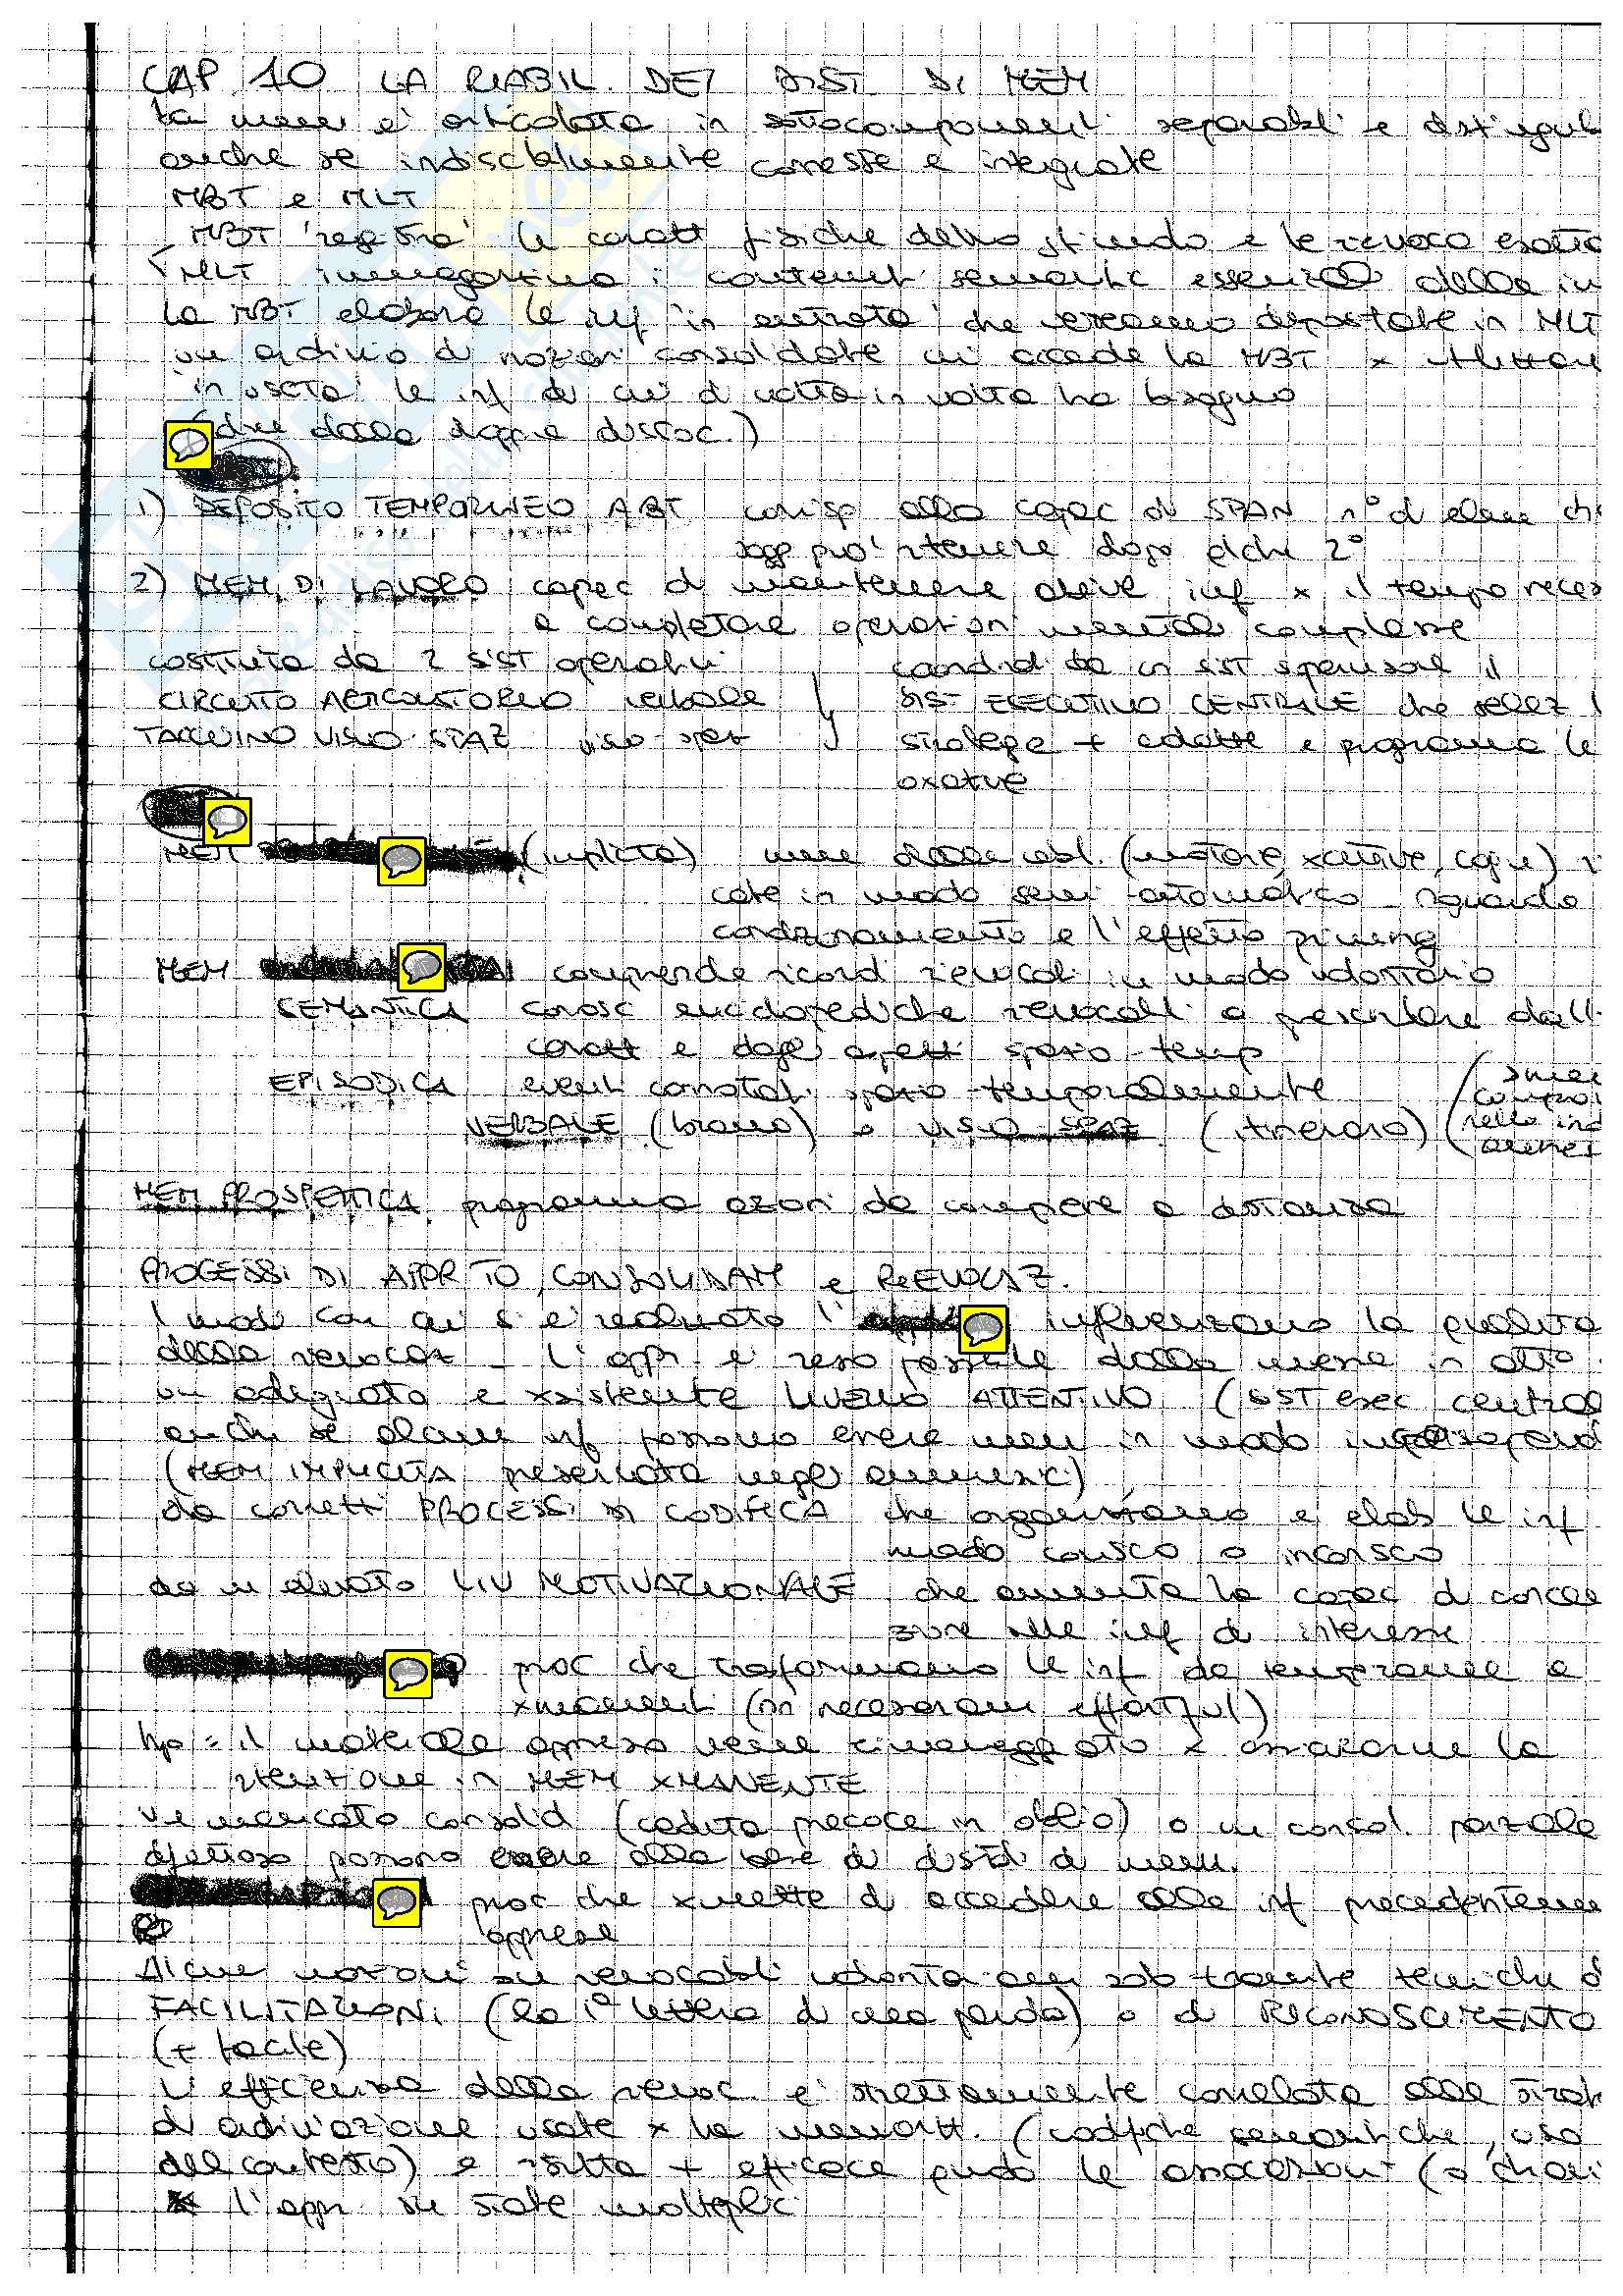 CAP 10 LA RIABIL. DEI DIST DI MEM
La mem e' articolata in sottocomponenti separabili e distinguib
anche se indiscutibilmente connesse e integrate
MBT e MLT
MBT 'registra' le caratt fisiche dello stimolo e le rievoca esatta
MLT immagazzina i contenuti semantic essenziali delle in
La MBT elabora le inf 'in entrata' che verranno depositate in MLT
un archivio di nozioni consolidate cui accede la MBT x riflettere
'in uscita' le inf di cui d volta in volta ha bisogno
(due dalla doppie dissoc.)
1) DEPOSITO TEMPORANEO ABT corrisp alla capac di SPAN n° d elem che
sogg puo' ritenere dopo alcni 2°
2) MEM DI LAVORO capac d mantenere attive inf x il tempo neces
a completare operazioni mentali complesse
costituita da 2 SIST operativi coordinati da un SIST supervisore il
CIRCUITO ARTICOLATORIO verbale SIST ESECUTIVO CENTRALE che selez l
TACCUINO VISUO SPAZ visuo-spaz strategie + adatte e programma le
oxative
MEM (implicita) mem delle abil. (motorie, xcettive, cogn) r
cate in modo semi-automatico riguarda
condizionamento e l'effetto priming
MEM comprende ricordi rievocati in modo volontario
SEMANTICA conosc enciclopediche rievocabili a prescindere dall
caratt e dagli aspetti spazio-temp
EPISODICA eventi connotati spazio-temporalmente
VERBALE (brano) o VISUO SPAZ (itinerario) (
nella
MEM PROSPETTICA programma azioni da compiere a distanza
PROCESSI DI APPR TO, CONSOLIDAM e RIEVOCAZ.
I modi con cui si e' realizzato l' influenzano la qualita
della rievocaz - L'appr e' reso possibile dalla messa in atto
un adeguato e xsistente LIVELLO ATTENTIVO (SIST esec central
anche se alcune inf possono essere mem in modo
(MEM IMPLICITA preservata negli amnesici)
da corretti PROCESSI DI CODIFICA che organizzano e elab le inf
modo conscio o inconscio
da un elevato LIV MOTIVAZIONALE che aumenta la capac d concen
zione alle inf di interesse
proc che trasformano le inf da temporanee a
xmanenti (nn necessariam effortful)
hp = il materiale appreso viene rimaneggiato x assicurarne la
ritenzione in MEM XMANENTE
un mancato consolid (caduta precoce in oblio) o un consol. parziale
difettoso possono essere alla base di disturbi di mem.
proc che xmette di accedere alle inf precedenteme
apprese
Alcune nozioni sn rievocabili volontariam solo tramite tecniche d
FACILITAZIONI (la 1ª lettera di una parola) o di RICONOSCIMENTO
(+ facile)
L'efficienza della rievoc e' strettamente correlata alle strat
di archiviazione usate x la memorizz. (codifiche semantiche, uso
del contesto) e risulta + efficace quando le associazioni (o chiavi
x l'appr sn state molteplici